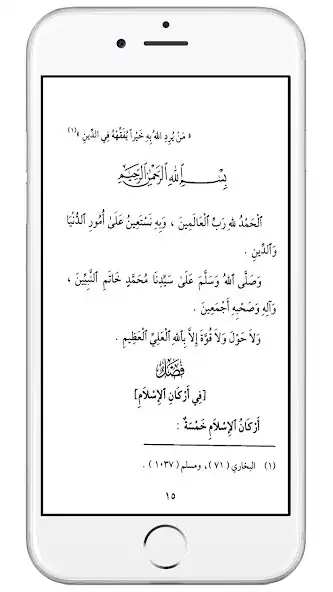 « مَنْ يُرِدِ اللهُ بِهِ خَيْراً يُفَقِّهْهُ فِي الدِّينِ »(١)
بِسْمِ اللهِ الرَّحْمٰنِ الرَّحِيمِ
الْحَمْدُ للهِ رَبِّ الْعَالَمِينَ ، وَبِهِ نَسْتَعِينُ عَلَىٰ أُمُورِ الدُّنْيَا
وَالدِّينِ .
وَصَلَّى اللهُ وَسَلَّمَ عَلَىٰ سَيِّدِنَا مُحَمَّدٍ خَاتَمِ النَّبِيِّينَ ،
وَآلِهِ وَصَحْبِهِ أَجْمَعِينَ .
وَلاَ حَوْلَ وَلاَ قُوَّةَ إِلاَّ بِاللهِ الْعَلِيِّ الْعَظِيمِ .
فَصْلٌ
[فِي أَرْكَانِ الإِسْلاَمِ]
أَرْكَانُ الإِسْلاَمِ خَمْسَةٌ :
(١) البخاري ( ٧١ ) ، ومسلم ( ١٠٣٧ ) .
١٥